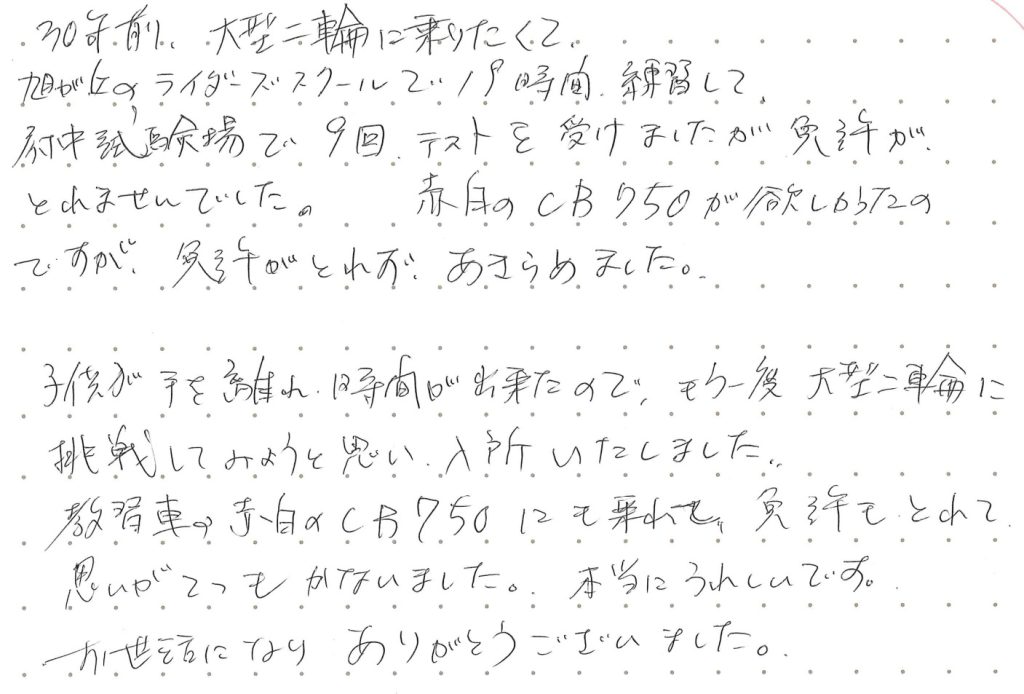 30年前、大型二輪に乗りたくて、
旭が丘のライダーズスクールで19時間、練習して、
府中試験場で9回、テストを受けましたが免許が、
とれませんでした。 赤白のCB750が欲しかったの
ですが、免許がとれず、あきらめました。
子供が手を離れ、時間が出来たので、もう一後大型二輪に
挑戦してみようと思い、入所いたしました。
教習車の赤白のCB750にも乗れて、免許もとれて
思いが二つもかないました。本当にうれしいです。
お世話になりありがとうございました。